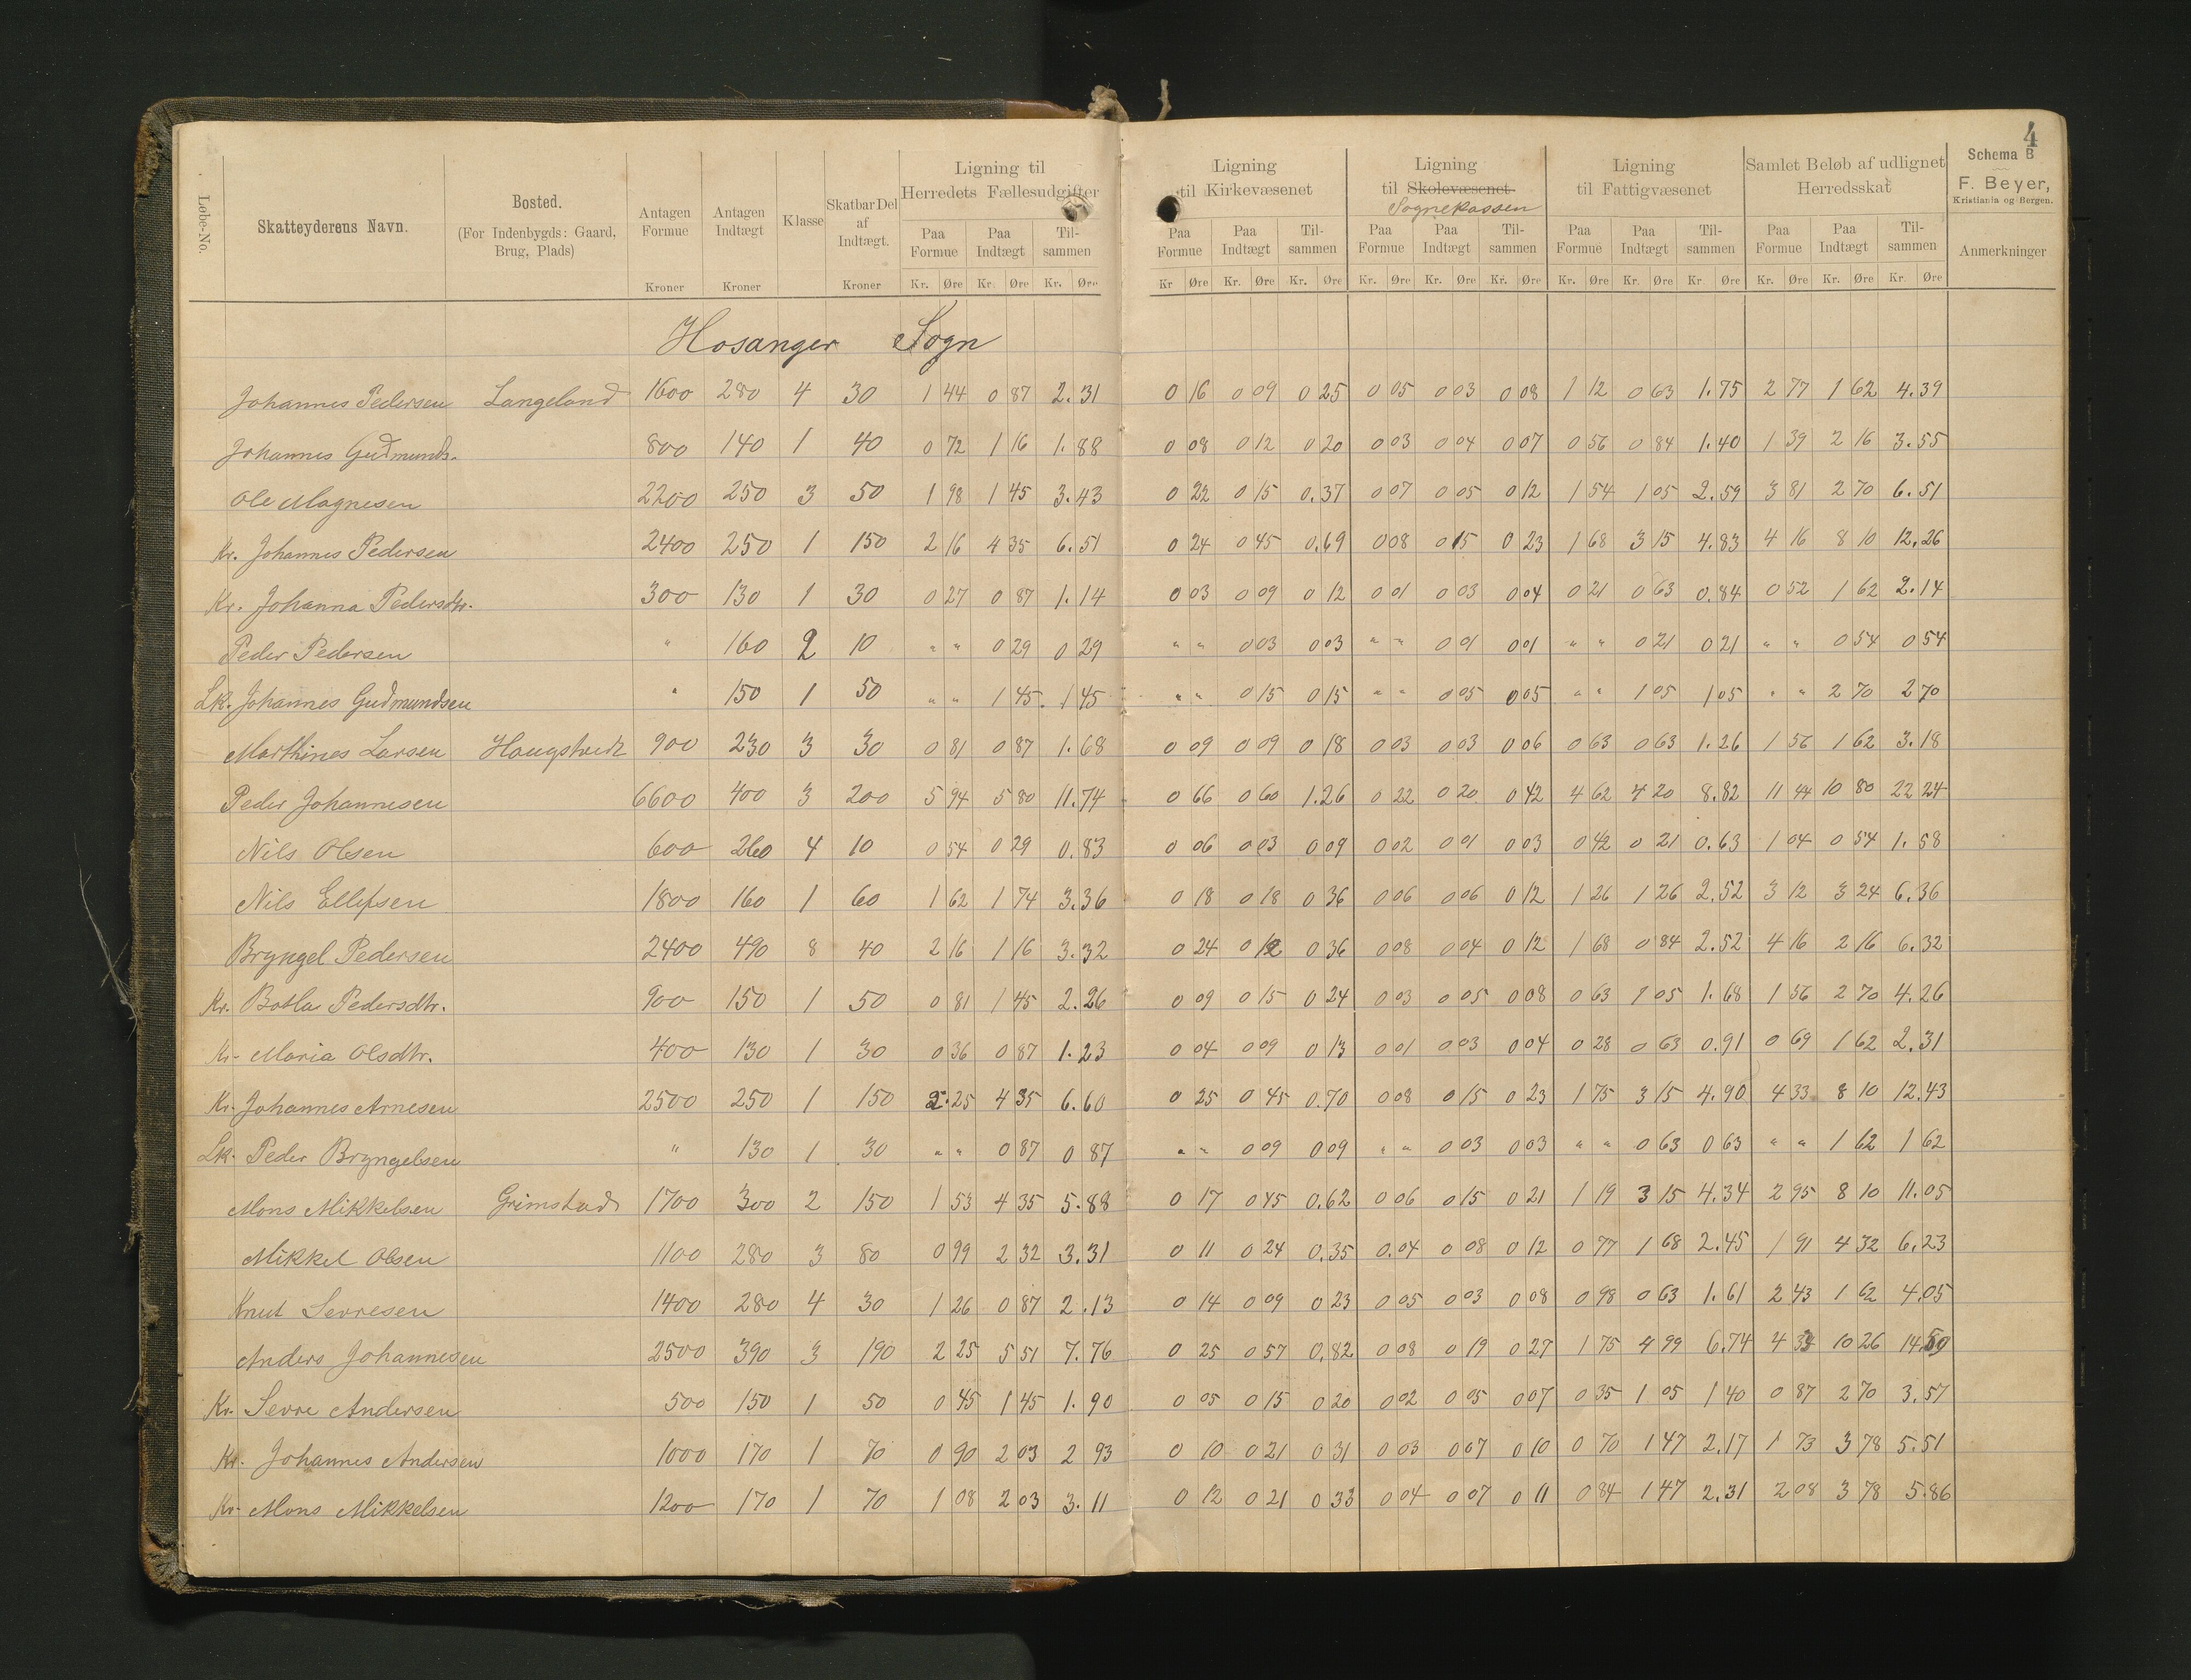 4
Løbe-No.
Skatteyderens Navn.
Bosted.
(For Indenbygds: Gaard,
Brug, Plads)
Antagen
Formue
Kroner
Antagen
Indtægt
Kroner
Klasse
Skatbar Del
af
Indtægt.
Kroner
Ligning til
Herredets Fællesudgifter
Paa Formue Paa Indtægt Tilsammen
Kr. Øre Kr. Øre Kr. Øre
Ligning
til Kirkevæsenet
Paa Formue Paa Indtægt Til-sammen
Kr Øre Kr. Øre Kr. Øre
Ligning
til Skolevæsenet
Sognekassen
Paa Formue Paa Indtægt Til-sammen
Kr. Øre Kr. Øre Kr. Øre
Ligning
til Fattigvæsenet
Paa Formue Paa Indtægt Til-sammen
Kr. Øre Kr. Øre Kr Øre
Samlet Beløb af udlignet
Herredsskat
Paa Formue Paa Indtægt Til-sammen
Kr. Øre Kr. Øre Kr. Øre
Schema B
F. Beyer,
Kristiania og Bergen.
Anmerkninger
Hosanger Sogn
Johannes Pedersen Langeland 1600 280 4 30 1 44 0 87 2.31 0 16 0 09 0 25 0 05 0 03 0 08 1 12 0 63 1.75 2 77 1 62 4.39
Johannes Gudmunds. 800 140 1 40 0 72 1 16 1.88 0 08 0 12 0 20 0 03 0 04 0 07 0 56 0 84 1.40 1 39 2 16 3.55
Ole Magnesen 2200 250 3 50 1 98 1 45 3.43 0 22 0 15 0.37 0 07 0 05 0 12 1 54 1 05 2.59 3 81 2 70 6.51
Kr. Johannes Pedersen 2400 250 1 150 2 16 4 35 6.51 0 24 0 45 0.69 0 08 0 15 0 23 1 68 3 15 4.83 4 16 8 10 12.26
Kr. Johanna Pedersdtr. 300 130 1 30 0 27 0 87 1.14 0 03 0 09 0 12 0 01 0 03 0 04 0 21 0 63 0.84 0 52 1 62 2.14
Peder Pedersen " 160 2 10 " " 0 29 0 29 " " 0 03 0 03 " " 0 01 0 01 " " 0 21 0 21 " " 0 54 0 54
Lk. Johannes Gudmundsen " 150 1 50 " " 1 45 1 45 " " 0 15 0 15 " " 0 05 0 05 " " 1 05 1 05 " " 2 70 2 70
Marthines Larsen Haugstvedt 900 230 3 30 0 81 0 87 1.68 0 09 0 09 0 18 0 03 0 03 0 06 0 63 0 63 1.26 1 56 1 62 3.18
Peder Johannesen 6600 400 3 200 5 94 5 80 11.74 0 66 0 60 1.26 0 22 0 20 0 42 4 62 4 20 8.82 11 44 10 80 22 24
Nils Olsen 600 260 4 10 0 54 0 29 0.83 0 06 0 03 0 09 0 02 0 01 0 03 0 42 0 21 0.63 1 04 0 54 1.58
Nils Ellefsen 1800 160 1 60 1 62 1 74 3.36 0 18 0 18 0 36 0 06 0 06 0 12 1 26 1 26 2.52 3 12 3 24 6.36
Bryngel Pedersen 2400 490 8 40 2 16 1 16 3.32 0 24 0 12 0 36 0 08 0 04 0 12 1 68 0 84 2.52 4 16 2 16 6.32
Kr. Botla Pedersdtr. 900 150 1 50 0 81 1 45 2.26 0 09 0 15 0 24 0 03 0 05 0 08 0 63 1 05 1.68 1 56 2 70 4.26
Kr. Maria Olsdtr. 400 130 1 30 0 36 0 87 1.23 0 04 0 09 0 13 0 01 0 03 0 04 0 28 0 63 0.91 0 69 1 62 2.31
Kr. Johannes Arnesen 2500 250 1 150 2.25 4 35 6.60 0 25 0 45 0.70 0 08 0 15 0 23 1 75 3 15 4.90 4 33 8 10 12.43
Lk. Peder Bryngelsen " 130 1 30 " " 0 87 0 87 " " 0 09 0 09 " " 0 03 0 03 " " 0 63 0 63 " " 1 62 1 62
Mons Mikkelsen Grimstad 1700 300 2 150 1 53 4 35 5.88 0 17 0 45 0.62 0 06 0 15 0 21 1 19 3 15 4.34 2 95 8 10 11.05
Mikkel Olsen 1100 280 3 80 0 99 2 32 3.31 0 11 0 24 0.35 0.04 0 08 0 12 0 77 1 68 2.45 1 91 4 32 6.23
Knut Sevresen 1400 280 4 30 1 26 0 87 2.13 0 14 0 09 0 23 0 05 0 03 0 08 0 98 0 63 1.61 2 43 1 62 4.05
Anders Johannesen 2500 390 3 190 2 25 5 51 7.76 0 25 0 57 0.82 0 08 0 19 0 27 1 75 4 99 6.74 4 33 10 26 14.59
Kr. Sevre Andersen 500 150 1 50 0 45 1 45 1.90 0 05 0 15 0 20 0 02 0 05 0 07 0 35 1 05 1 40 0 87 2 70 3.57
Kr. Johannes Andersen 1000 170 1 70 0 90 2 03 2 93 0 10 0 21 0 31 0 03 0 07 0 10 0 70 1 47 2.17 1 73 3 78 5.51
Kr. Mons Mikkelsen 1200 170 1 70 1 08 2 03 3.11 0 12 0 21 0 33 0 04 0 07 0 11 0 84 1 47 2.31 2 08 3 78 5.86